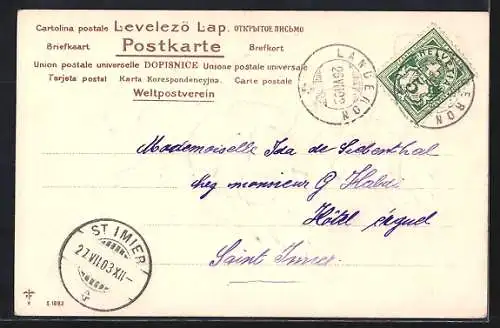 Cartolina postale Levelező Lap. ОТКРЫТОЕ ПИСЬМО
Briefkaart Postkarte Brefkort
Union postale universelle DOPISNICE Unione postale universale
Tarjeta postal Karta Korespondencyjna. Carte postale
Weltpostverein
LANDERON
26 VII 03
HELVETIA
5
ERON
Mademoiselle Ida de Siebenthal
chez monsieur G
Hôtel érguel
Saint Imier.
ST IMIER
27.VII.03 XII-